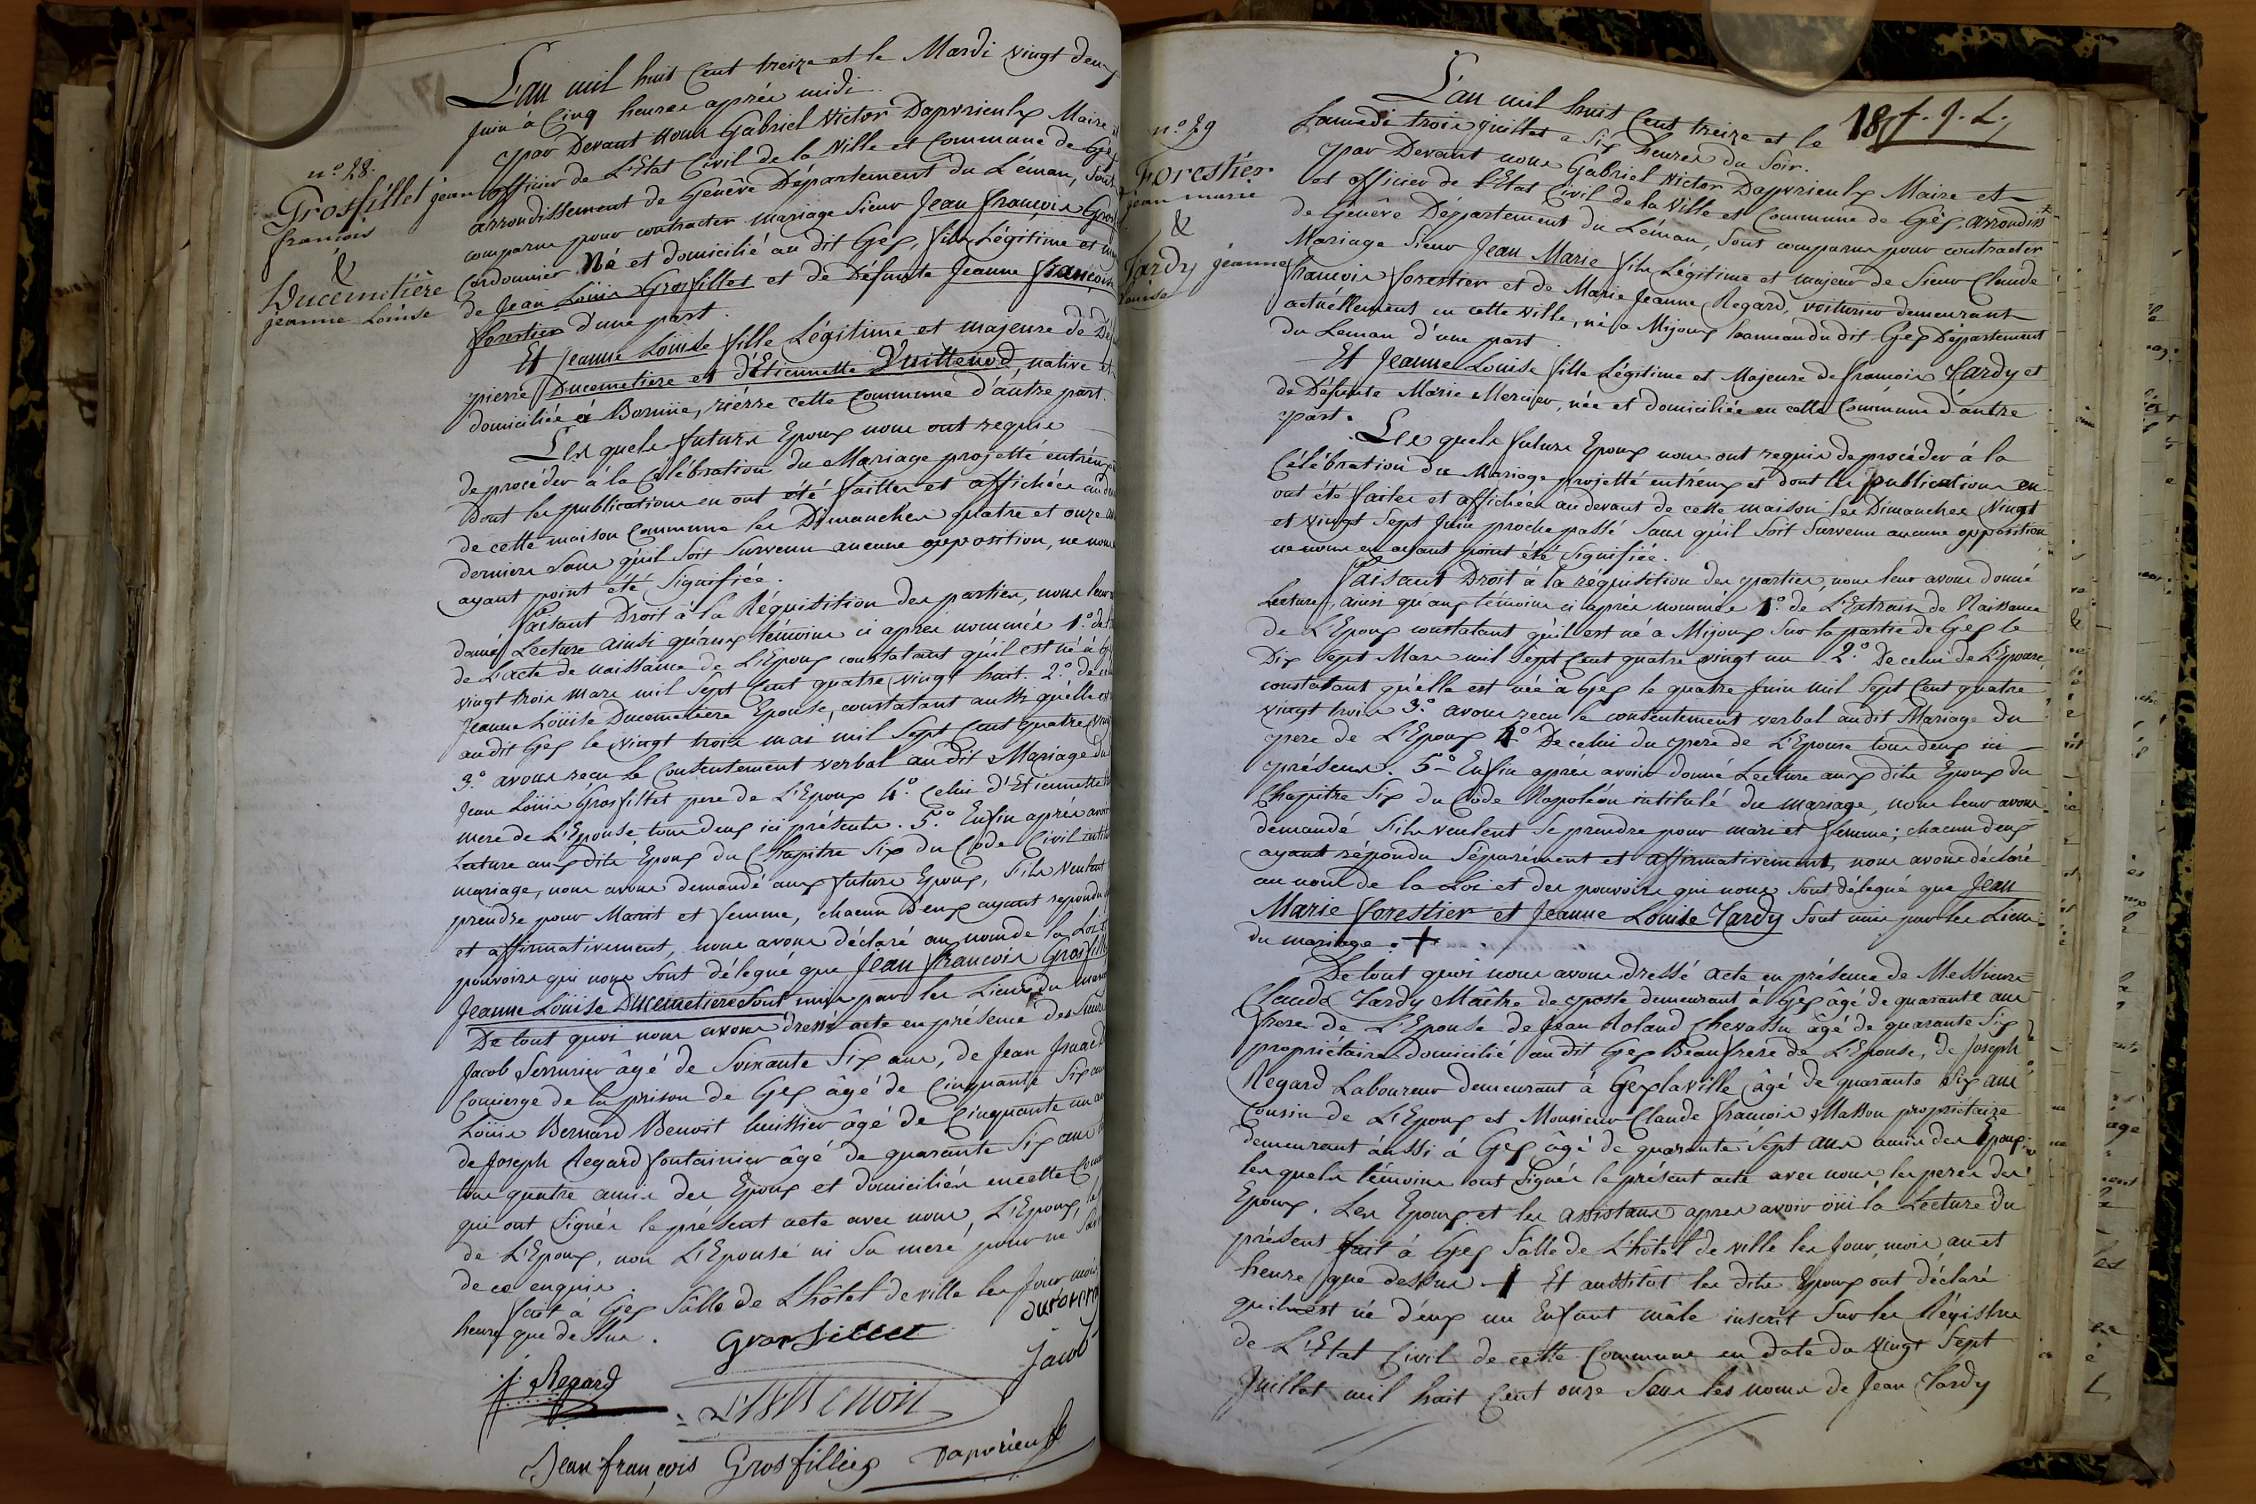 n° 28.
Grosfillet jean
françois
&
Ducimetière
jeanne Louise
L'an mil huit Cent treize et le Mardi vingt deux
Juin à Cinq heures après midi.
par Devant Nous Gabriel Victor Dapvrieulx Maire
officier de L'Etat Civil de la Ville et Commune de Gex
arrondissement de Genêve Département du Léman, Sont
comparus pour contracter mariage Sieur Jean françois Gros
Cordonnier Né et domicilié au dit Gex, fils Légitime et
de Jean Louis Grosfillet et de Défunte Jeanne françoise
forestier d'une part.
Et Jeanne Louise fille Légitime et majeure de Dé
pierre Ducemetiere et d'Etiennette Vuittenod, native et
domiciliée à , rièrre cette Commune d'autre part.
Les quels futurs Epoux nous ont requis
de procéder à la Célébration du Mariage projetté entréux
dont les publications en ont été faittes et affichées au
de cette maison Commune les Dimanches quatre et onze
derniers Sans qu'il Soit Survenu aucune opposition, ne nous
ayant point été Signifiée.
faisant Droit à la Réquisition des parties, nous leur
donné Lecture ainsi qu'aux témoins ci après nommés 1°. de
de L'acte de naissance de L'Epoux constatant qu'il est né à
vingt trois mars mil Sept Cent quatre vingt huit. 2°. de
Jeanne Loüise Ducemetiere Epouse, constatant aussi qu'elle
audit Gex le vingt trois mai mil Sept Cent quatre
3°. avons reçu le Consentement verbal au dit Mariage du
Jean Loüis Grosfillet pere de L'Epoux 4°. Celui d'Etiennette
mere de L'Epouse, tous deux ici présents. 5°. Enfin après avoir
Lecture aux dits Epoux du Chapitre Six du Code Civil
mariage, nous avons demandé aux futurs Epoux, S'ils veulent
prendre pour Mari et femme, chacun d'eux ayant repondu
et affirmativement, nous avons déclaré au nom de la Loi
pouvoirs qui nous Sont délegué que Jean françois Grosfill
Jeanne Loüise Ducemetiere Sont unis par les Liens du
De tout quoi nous avons dressé acte en présence des Sieurs
Jacob Serrurier âgé de Soixante Six ans, de Jean Isaac
Concierge de la prison de Gex âgé de Cinquante Six ans
Loüis Bernard Benoit huissier âgé de Cinquante un
de Joseph Regard fontainier âgé de quarante Six ans
tous quatre amis des Epoux et domiciliés en cette
qui ont Signés le présent acte avec nous, L'Epoux,
de L'Epoux, non L'Epouse ni Sa mere, pour ne
de ce enquis.
fait à Gex Salle de L'hôtel de ville les Jour mois,
heure que dessus.
Grosfillet
Jacob
J. Regard
Jean françois Grosfilliey
Dapvrieulx
18 f. J. L.
n° 29
Forestier
jean marie
&
Tardy jeanne
Louise
L'an mil huit Cent treize et le
Samedi trois juillet a Six heures du Soir.
par Devant nous Gabriel Victor Dapvrieulx Maire et
et officier de l'Etat Civil de la Ville et Commune de Gex, arrondiss
de Genêve Département du Léman, Sont comparus pour contracter
Mariage Sieur Jean Marie fils Légitime et majeur de Sieur Claude
francois forestier et de Marie Jeanne Regard, voiturier demeurant
actuéllement en cette ville, né a Mijoux hameau du dit Gex Département
du Leman d'une part.
Et Jeanne Louise fille Légitime et Majeure de francois Tardy et
de Défunte Marie Mercier, née et domiciliée en cette Commune d'autre
part.
Les quels futurs Epoux nous ont requis de procéder à la
Célébration du Mariage projetté entréux et dont les publications en
ont été faites et affichées au devant de cette maison les Dimanches Vingt
et vingt Sept Juin proche passé Sans qu'il Soit Survenu aucune opposition
ne nous en ayant point été Signifiée.
faisant Droit à la réquisition des parties, nous leur avons donné
Lecture, ainsi qu'aux témoins ci après nommés 1°. de L'Extrait de Naissance
de L'Epoux constatant qu'il est né a Mijoux Sur la partie de Gex le
Dix Sept Mars mil Sept Cent quatre vingt un 2°. De celui de L'Epouse,
constatant qu'elle est née à Gex le quatre Juin mil Sept Cent quatre
vingt trois 3°. avons reçu le consentement verbal audit Mariage du
pere de L'Epoux 4°. De celui du pere de L'Epouse tous deux ici
présens. 5°. Enfin après avoir donné Lecture aux dits Epoux du
Chapitre Six du Code Napoléon intitulé du mariage, nous leur avons
demandé S'ils veulent Se prendre pour mari et femme; chacun deux
ayant répondu Séparément et affirmativement, nous avons déclaré
au nom de la Loi et des pouvoirs qui nous Sont délegué que Jean
Marie forestier et Jeanne Louise Tardy Sont unis par les Liens
du mariage. +
De tout quoi nous avons dressé acte en présence de Messieurs
Claude Tardy Maître de poste demeurant à Gex âgé de quarante ans
frere de L'Epouse de Jean Roland Chevassu âgé de quarante Six
propriétaire domicilié au dit Gex Beaufrere de L'Epouse, de Joseph
Regard Laboureur demeurant à Gex la ville âgé de quarante Six ans
Cousin de L'Epoux et Monsieur Claude francois Masson propriétaire
demeurant áussi à Gex âgé de quarante Sept ans amis des Epoux.
les quels témoins ont Signés le présent acte avec nous, les peres des
Epoux, Les Epoux et les assistans apres avoir oüi la Lecture du
présent fait à Gex Salle de L'hôtel de ville les Jour, mois, an et
heure que dessus + Et aussitôt les dits Epoux ont déclaré
qu'il est né d'eux un Enfant mâle inscrit Sur les Régistres
de L'Etat Civil de cette Commune en date du Vingt Sept
Juillet mil huit Cent onze Sous les noms de Jean Tardy